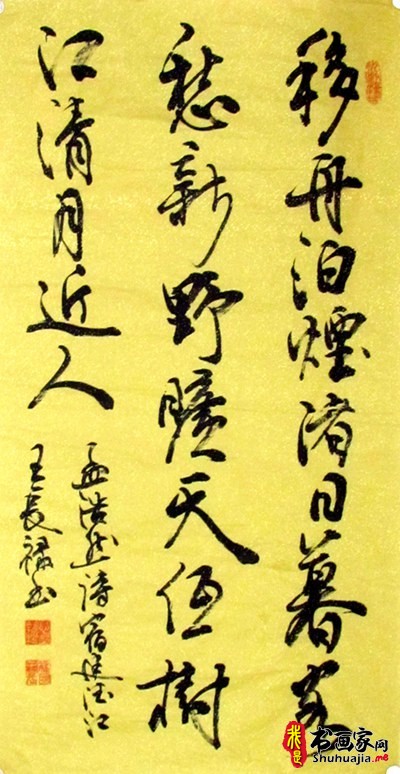 移舟泊煙渚日暮客
愁新野曠天低樹
江清月近人
孟浩然詩宿建德江
王長禄书
我是
书画家网
Shuhuajia.me